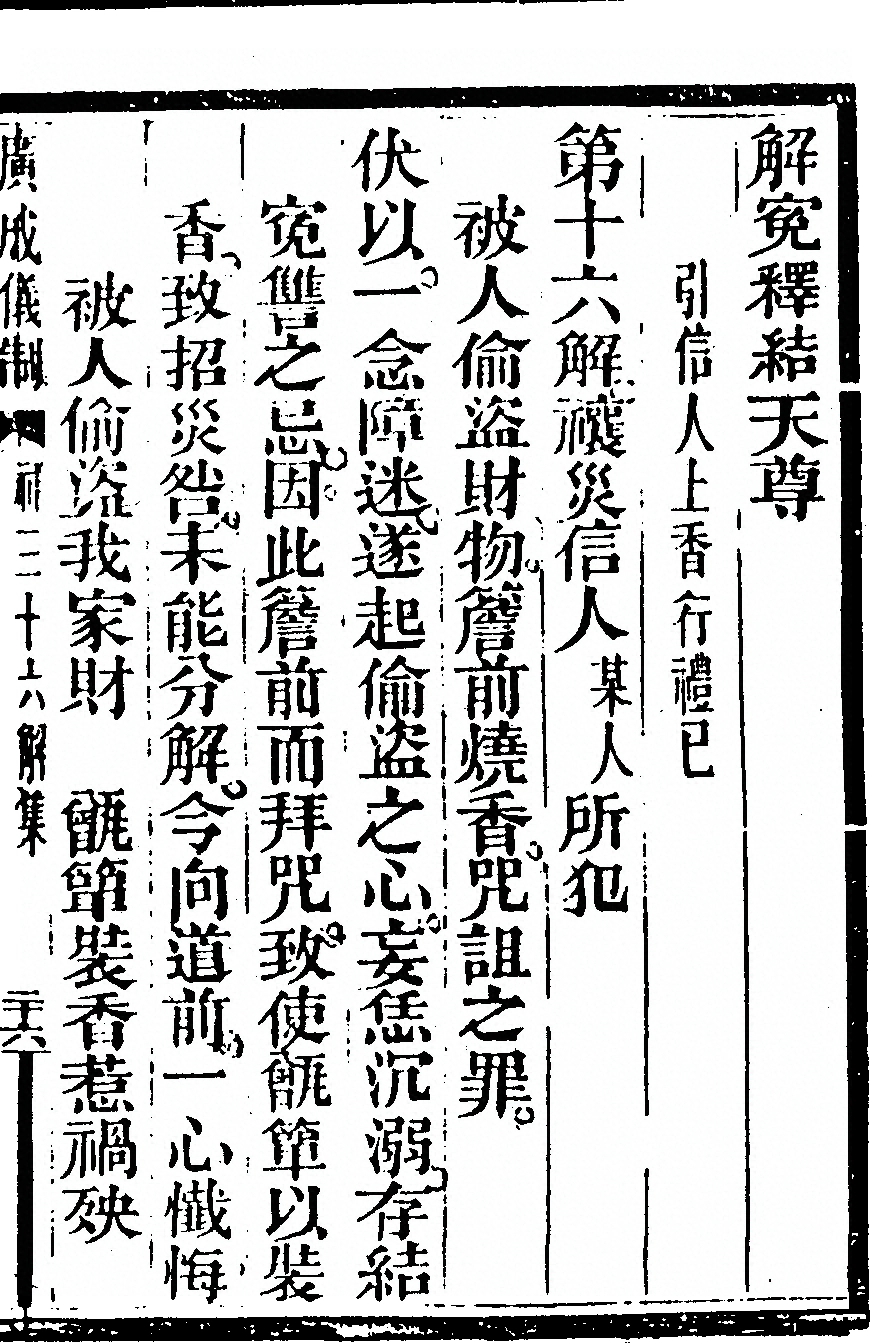 解寃釋結天尊
引信人上香行禮已
第十六解禳災信人某人所犯
被人偷盜財物。簷前燒香。咒詛之罪。
伏以。一念障迷。遂起偷盜之心。妄恁沉溺。存結
寃讐之忌。因此簷前而拜咒。致使甑箄以裝
香。致招災咎。未能分解。今向道前。一心懺悔
被人偷盜我家財 甑箄裝香惹禍殃
廣成儀制 禳三十六解集 二十六